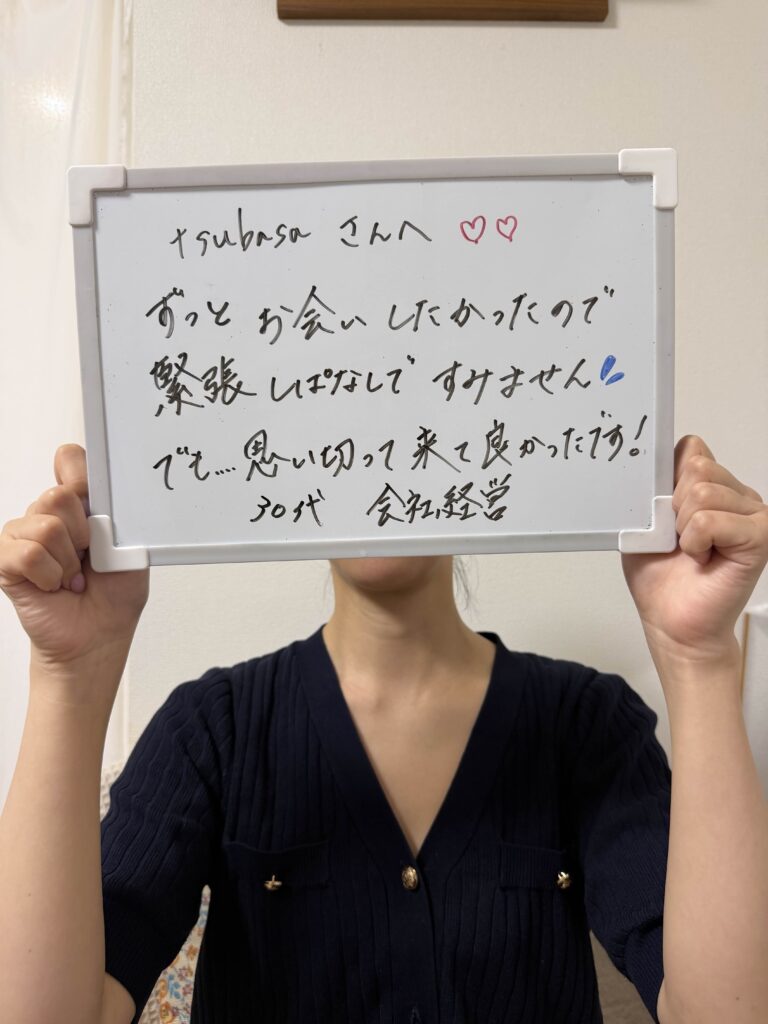 tsubasa さんへ ♡♡
ずっと お会い したかったので
緊張 しぱなしで すみません
でも.... 思い切って 来て 良かったです!
30代 会社経営